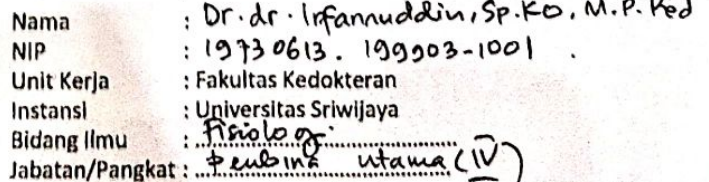 Nama : Dr. dr. Irfannuddin, Sp.KO, M.P.Ked
NIP : 19730613. 199903-1001 .
Unit Kerja : Fakultas Kedokteran
Instansi : Universitas Sriwijaya
Bidang Ilmu : Fisiologi
Jabatan/Pangkat : Pembina utama (IV)